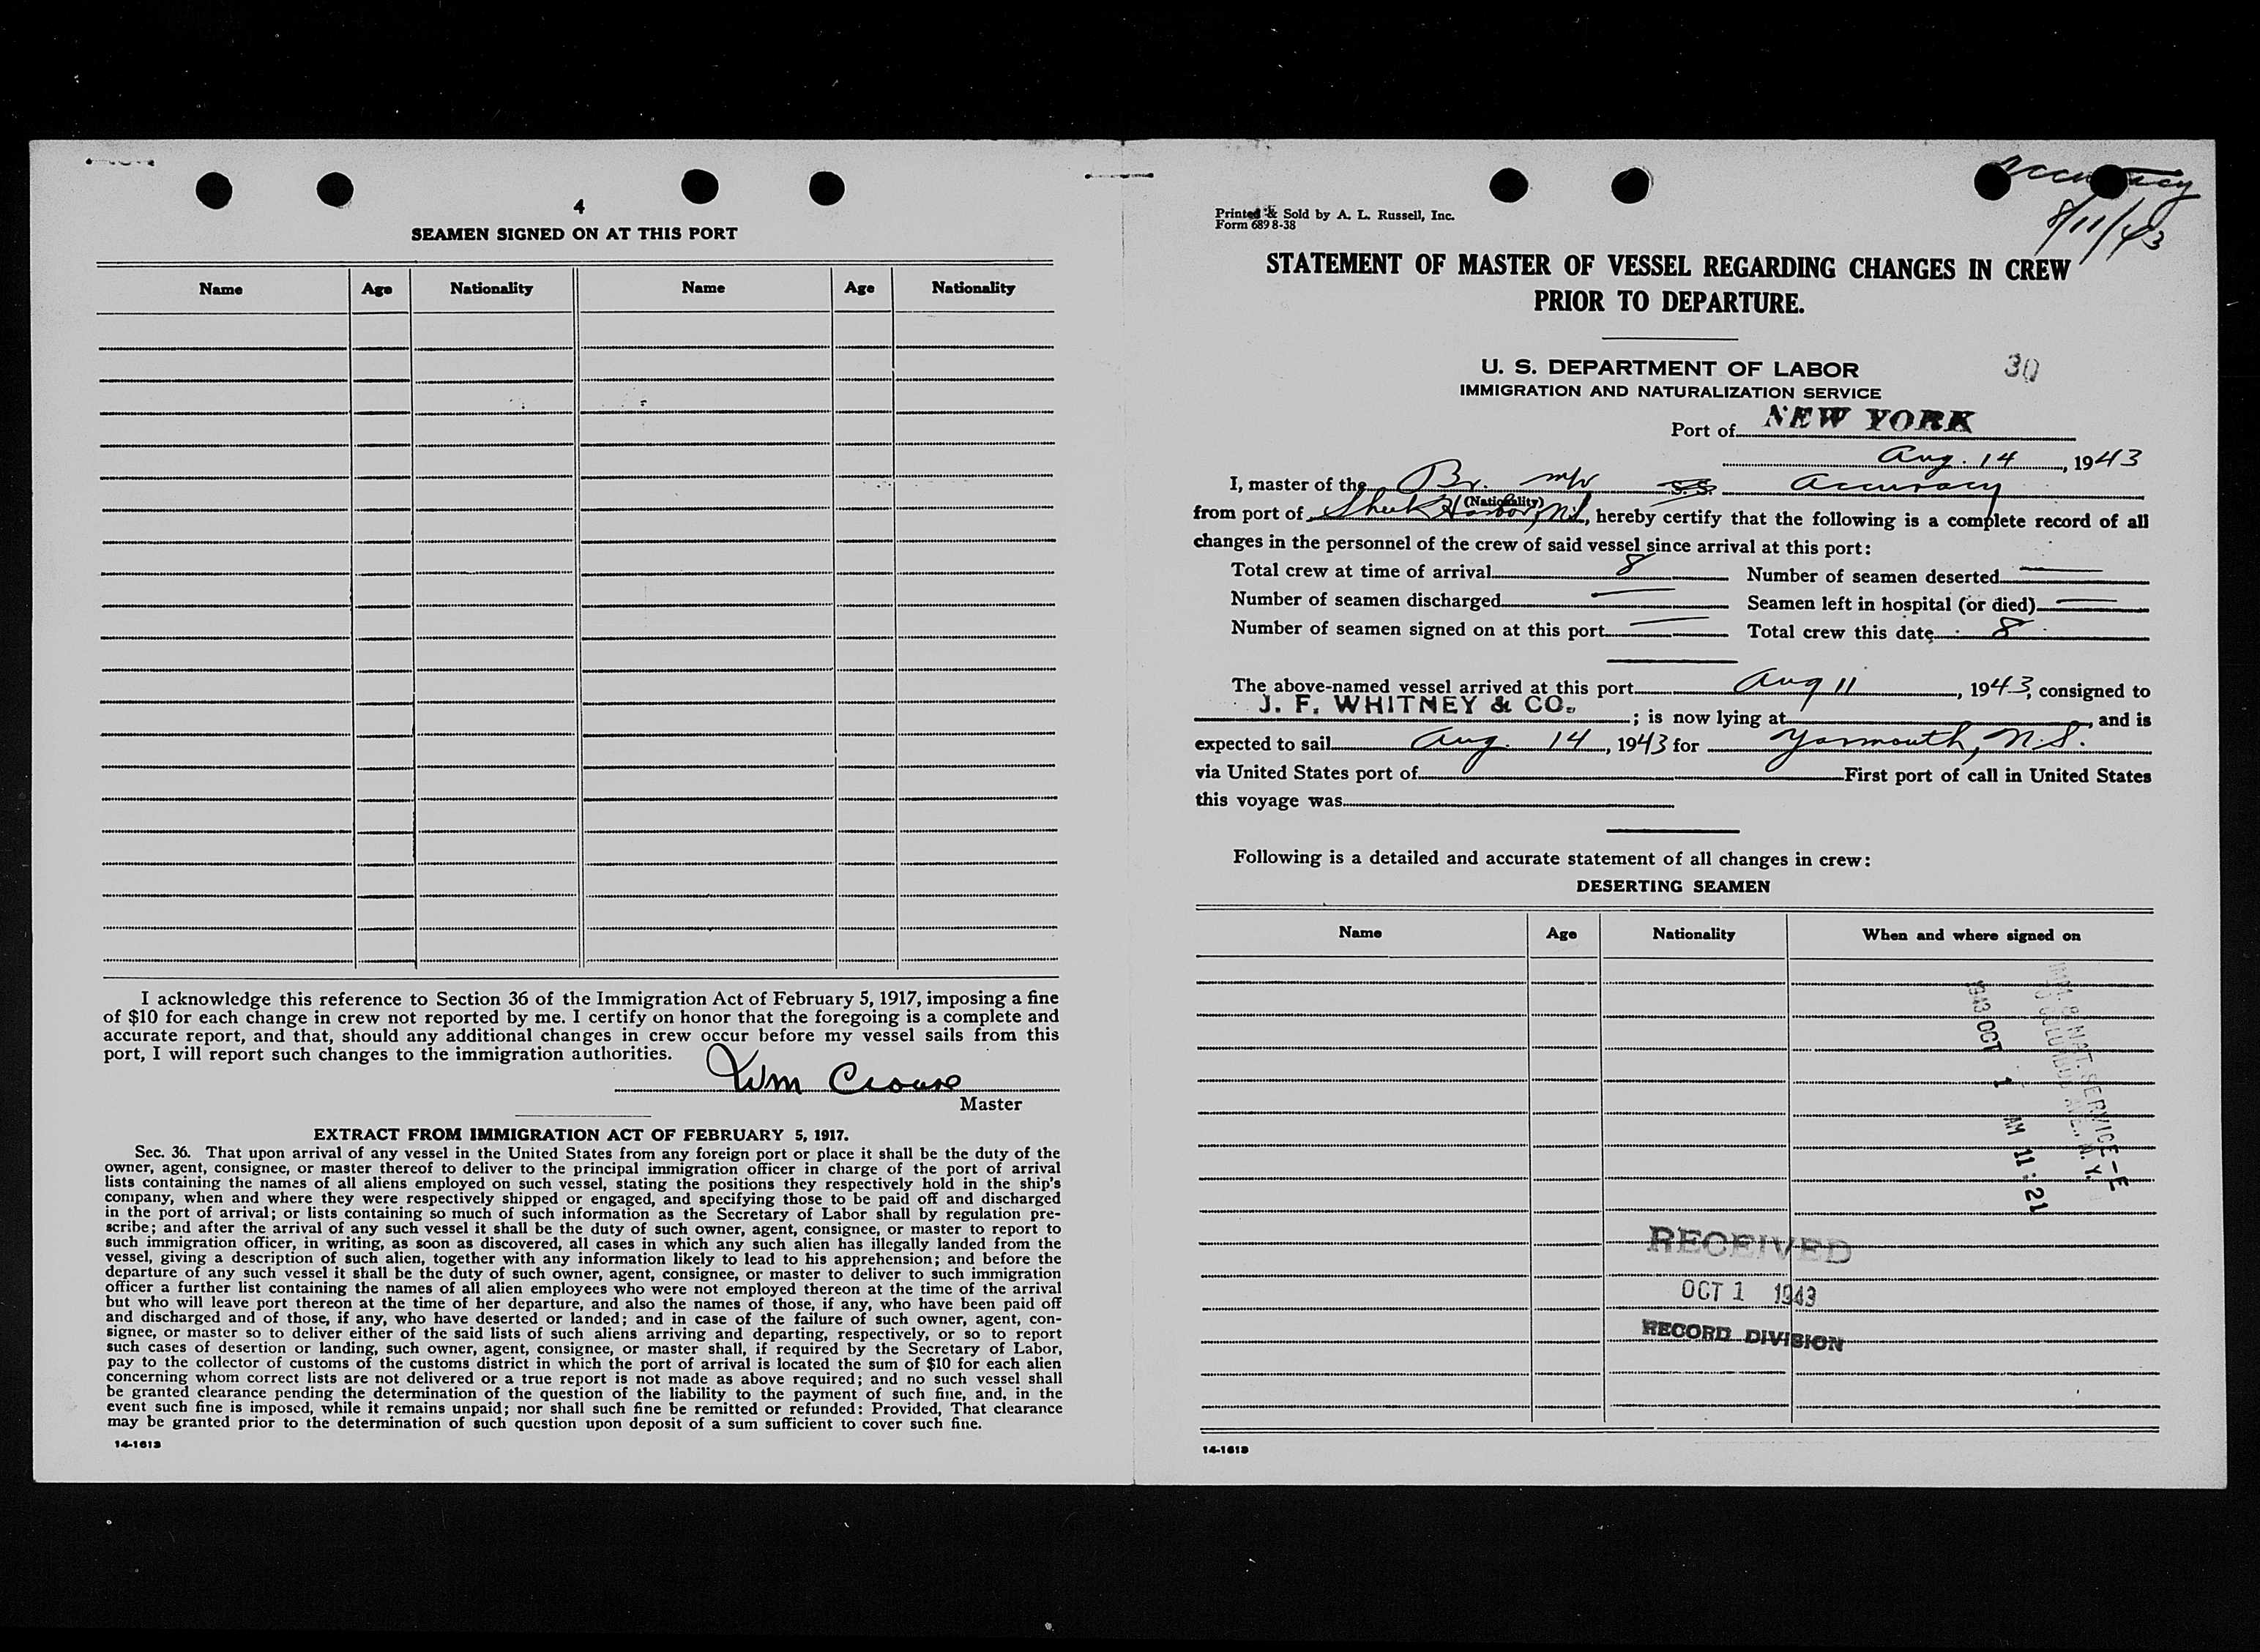 4
SEAMEN SIGNED ON AT THIS PORT
Name Age Nationality Name Age Nationality
I acknowledge this reference to Section 36 of the Immigration Act of February 5, 1917, imposing a fine
of $10 for each change in crew not reported by me. I certify on honor that the foregoing is a complete and
accurate report, and that, should any additional changes in crew occur before my vessel sails from this
port, I will report such changes to the immigration authorities.
Wm Crouse
Master
EXTRACT FROM IMMIGRATION ACT OF FEBRUARY 5, 1917.
Sec. 36. That upon arrival of any vessel in the United States from any foreign port or place it shall be the duty of the
owner, agent, consignee, or master thereof to deliver to the principal immigration officer in charge of the port of arrival
lists containing the names of all aliens employed on such vessel, stating the positions they respectively hold in the ship's
company, when and where they were respectively shipped or engaged, and specifying those to be paid off and discharged
in the port of arrival; or lists containing so much of such information as the Secretary of Labor shall by regulation pre-
scribe; and after the arrival of any such vessel it shall be the duty of such owner, agent, consignee, or master to report to
such immigration officer, in writing, as soon as discovered, all cases in which any such alien has illegally landed from the
vessel, giving a description of such alien, together with any information likely to lead to his apprehension; and before the
departure of any such vessel it shall be the duty of such owner, agent, consignee, or master to deliver to such immigration
officer a further list containing the names of all alien employees who were not employed thereon at the time of the arrival
but who will leave port thereon at the time of her departure, and also the names of those, if any, who have been paid off
and discharged and of those, if any, who have deserted or landed; and in case of the failure of such owner, agent, con-
signee, or master so to deliver either of the said lists of such aliens arriving and departing, respectively, or so to report
such cases of desertion or landing, such owner, agent, consignee, or master shall, if required by the Secretary of Labor,
pay to the collector of customs of the customs district in which the port of arrival is located the sum of $10 for each alien
concerning whom correct lists are not delivered or a true report is not made as above required; and no such vessel shall
be granted clearance pending the determination of the question of the liability to the payment of such fine, and, in the
event such fine is imposed, while it remains unpaid; nor shall such fine be remitted or refunded: Provided, That clearance
may be granted prior to the determination of such question upon deposit of a sum sufficient to cover such fine.
14-1613
Accuracy
8/11/43
Printed & Sold by A. L. Russell, Inc.
Form 689 8-38
STATEMENT OF MASTER OF VESSEL REGARDING CHANGES IN CREW
PRIOR TO DEPARTURE.
U. S. DEPARTMENT OF LABOR
30
IMMIGRATION AND NATURALIZATION SERVICE
Port of NEW YORK
Aug. 14, 1943
I, master of the Br. m/v S. S. Accuracy
(Nationality)
from port of Sheet Harbor, N.S., hereby certify that the following is a complete record of all
changes in the personnel of the crew of said vessel since arrival at this port:
Total crew at time of arrival 8 Number of seamen deserted —
Number of seamen discharged — Seamen left in hospital (or died) —
Number of seamen signed on at this port — Total crew this date 8
The above-named vessel arrived at this port Aug 11, 1943, consigned to
J. F. WHITNEY & CO.; is now lying at, and is
expected to sail Aug. 14, 1943 for Yarmouth, N.S.
via United States port of First port of call in United States
this voyage was
Following is a detailed and accurate statement of all changes in crew:
DESERTING SEAMEN
Name Age Nationality When and where signed on
IMM. & NAT. SERVICE-E
1943 OCT 1 AM 11:21
RECEIVED
OCT 1 1943
RECORD DIVISION
14-1613